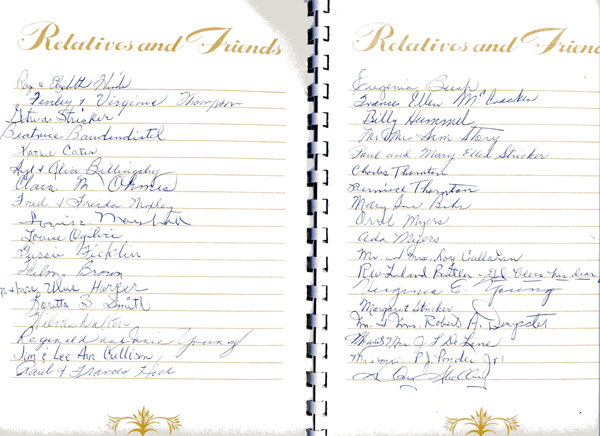 Relatives and Friends
Ray & Elizabeth
Finley & Virginia Thompson
Stricker
Beatrice Baudendistel
Cater
& Alice Billingsley
Clara M. Ohmes
Fred & Freida Moxley
Louise
Louise Ogilvie
Gussie Ficklin
Thelma Brown
Harper
Loretta B Smith
Wilma Walters
Reginald and Janie Young
Jim & Lee Ann Cullison
Paul & Frances Hill
Relatives and Frien
Eugenia Bush
Frances Ellen McCracken
Billy Hummel
Mr & Mrs Sam Story
Paul and Mary Ellen Stricker
Charles Thornton
Bernice Thornton
Mary Sue
Orval Myers
Ada Myers
Mr. and Mrs. Roy Callahan
Rev. Leland
Virginia E. Young
Margaret Stricker
Mr. & Mrs. Robert A. Dempster
Mr & Mrs. J F DeLane
Mr & Mrs P.J. Ponder Jr